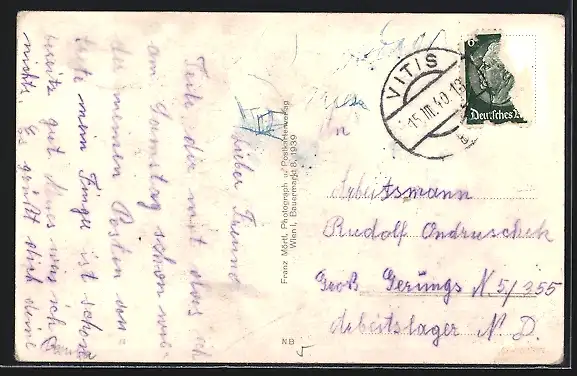 Lieber Freund
Teile dir mit das ich
am Samstag schon wie-
der meinen Posten an=
trete mein Finger ist schon
bereits gut Neues weis ich
nichts. Es grüßt dich deine
Franz Mörtl, Photograph u. Postkartenverlag
Wien I, Bauernmarkt 8, 1939
NB 5
VITIS
15.III.40.18
6
Deutsches
An
Arbeitsmann
Rudolf Andruschek
Groß Gerungs N 5/355
Arbeitslager N. D.